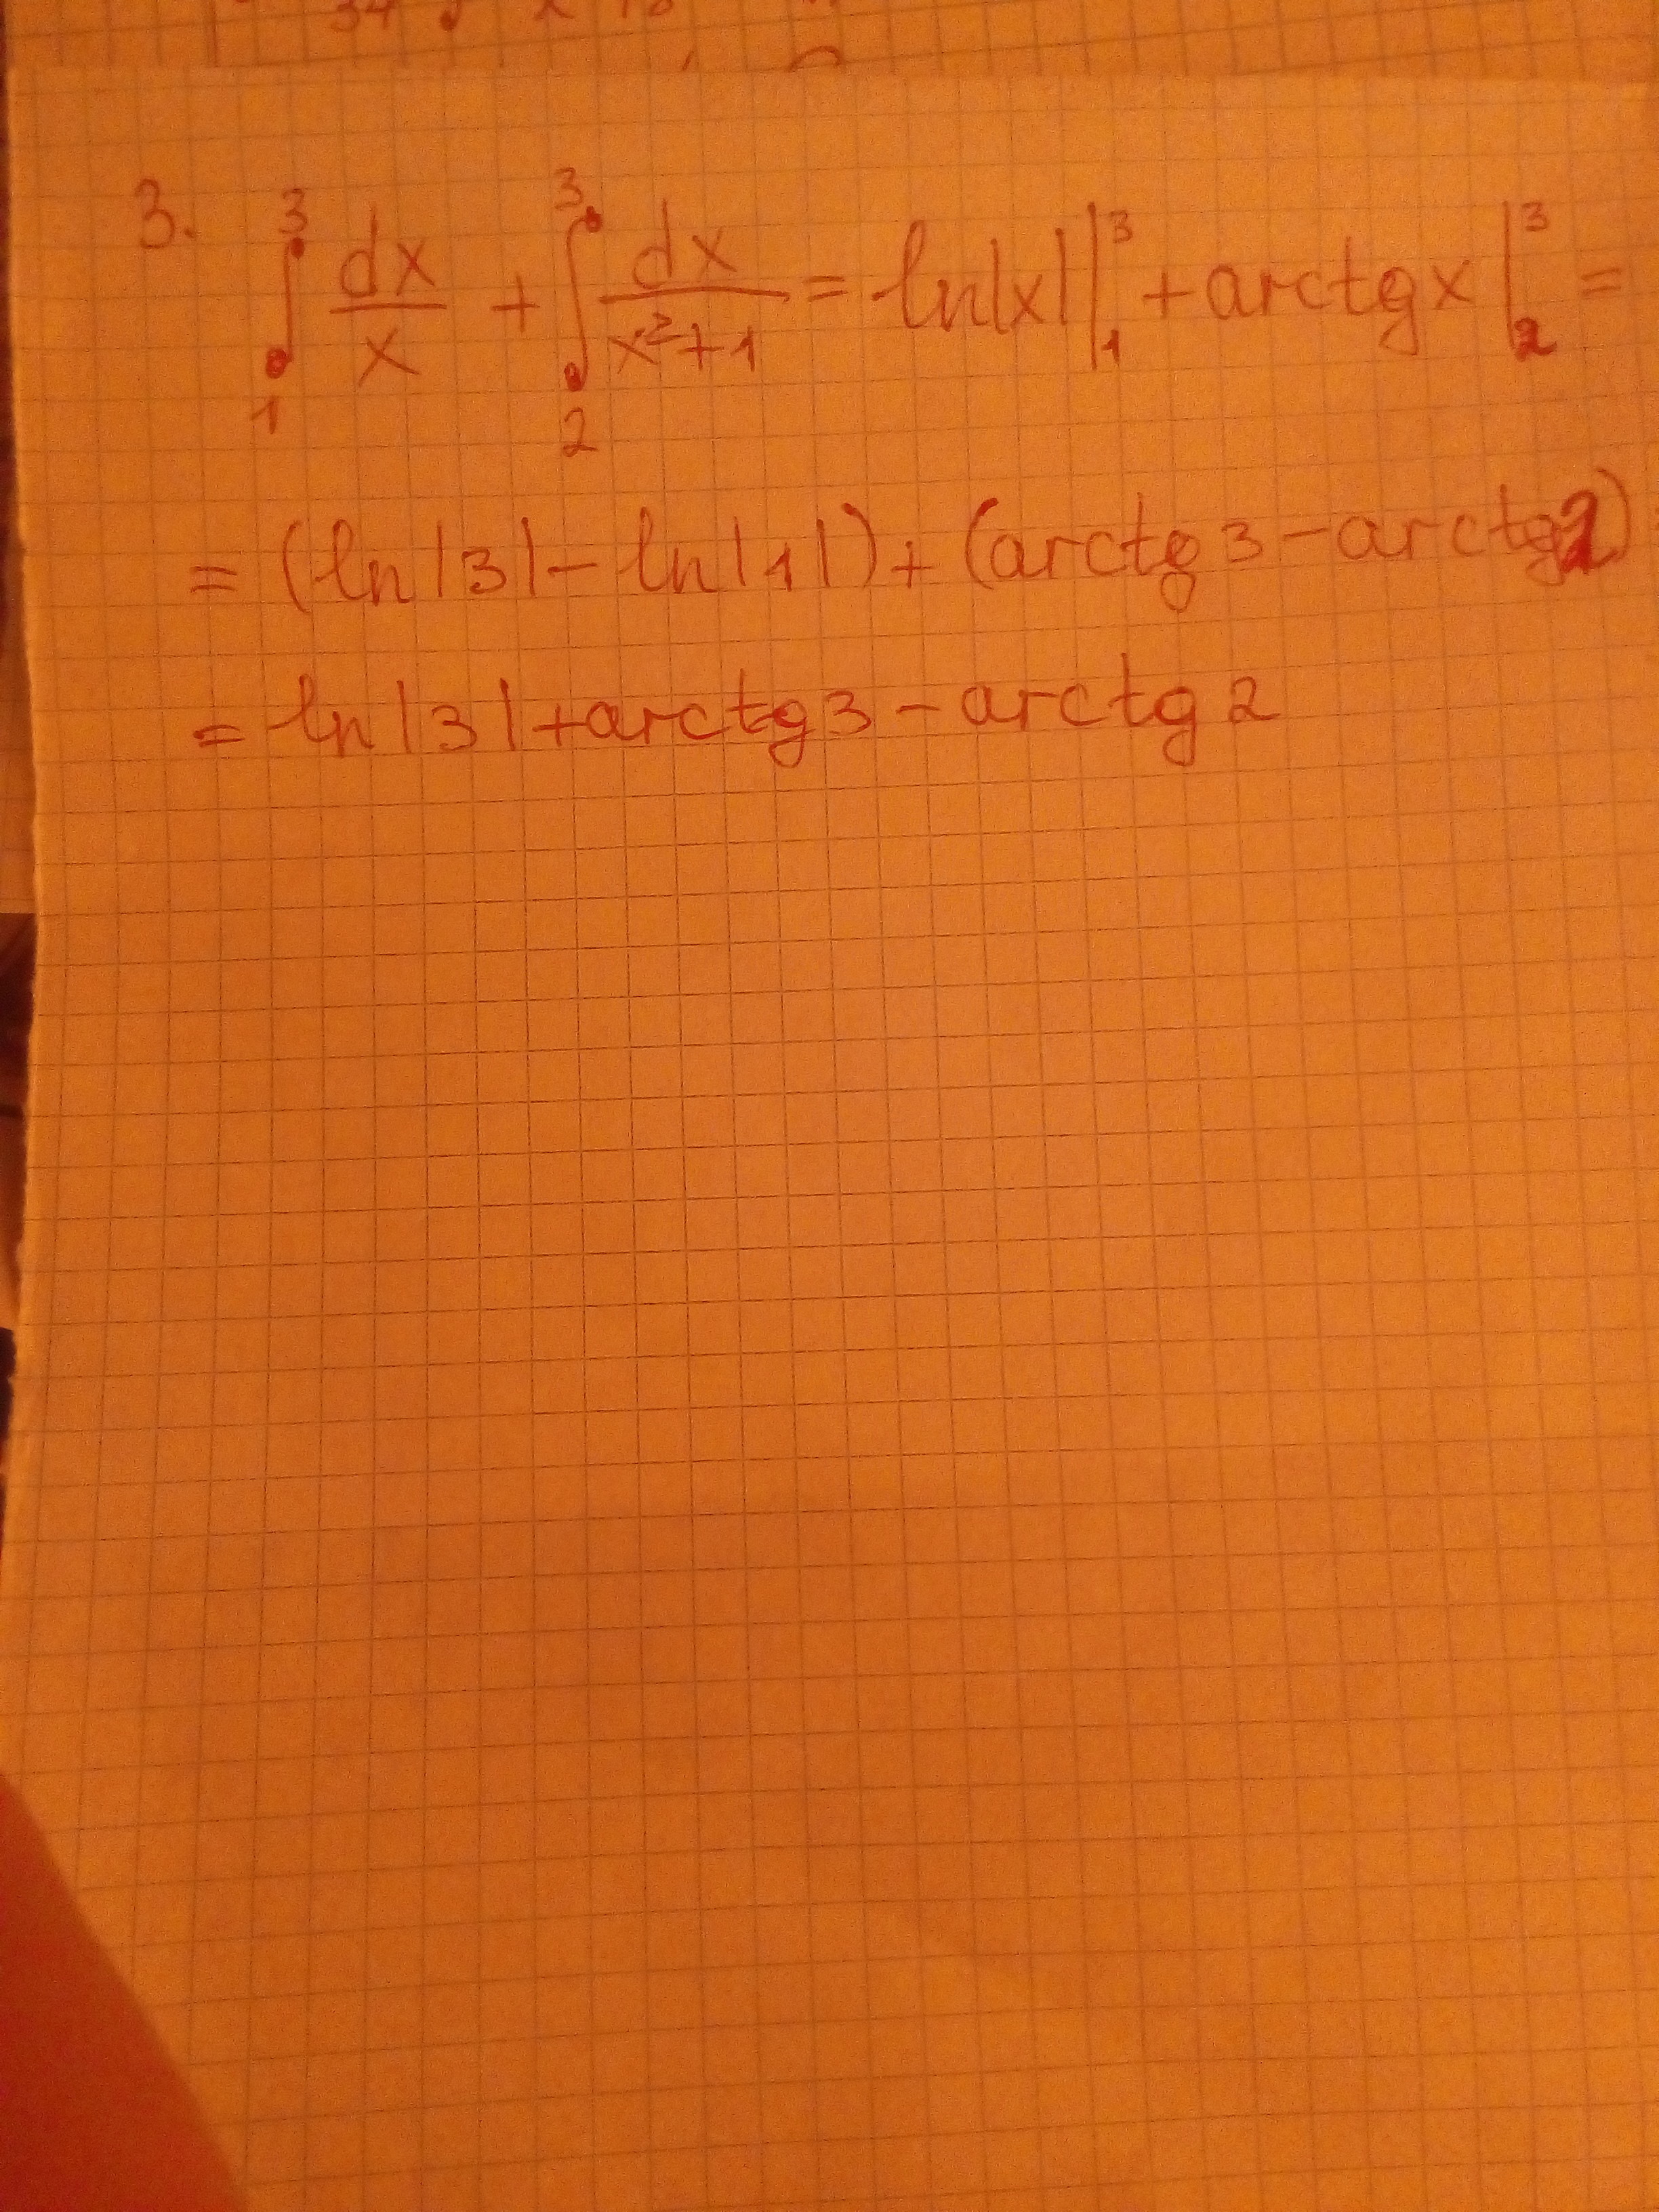 3. ∫₁³ dx/x + ∫₂³ dx/(x²+1) = ln|x| |₁³ + arctg x |₂³ =
= (ln|3| - ln|1|) + (arctg 3 - arctg 2)
= ln|3| + arctg 3 - arctg 2